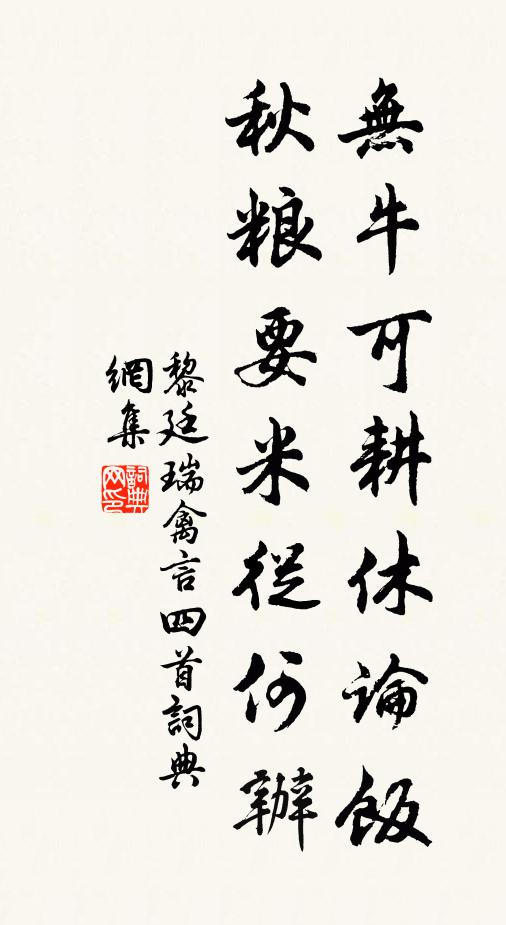 無牛可耕休論飯
秋粮要米從何辦
黎廷瑞禽言四首詞典
網集
詞典網印